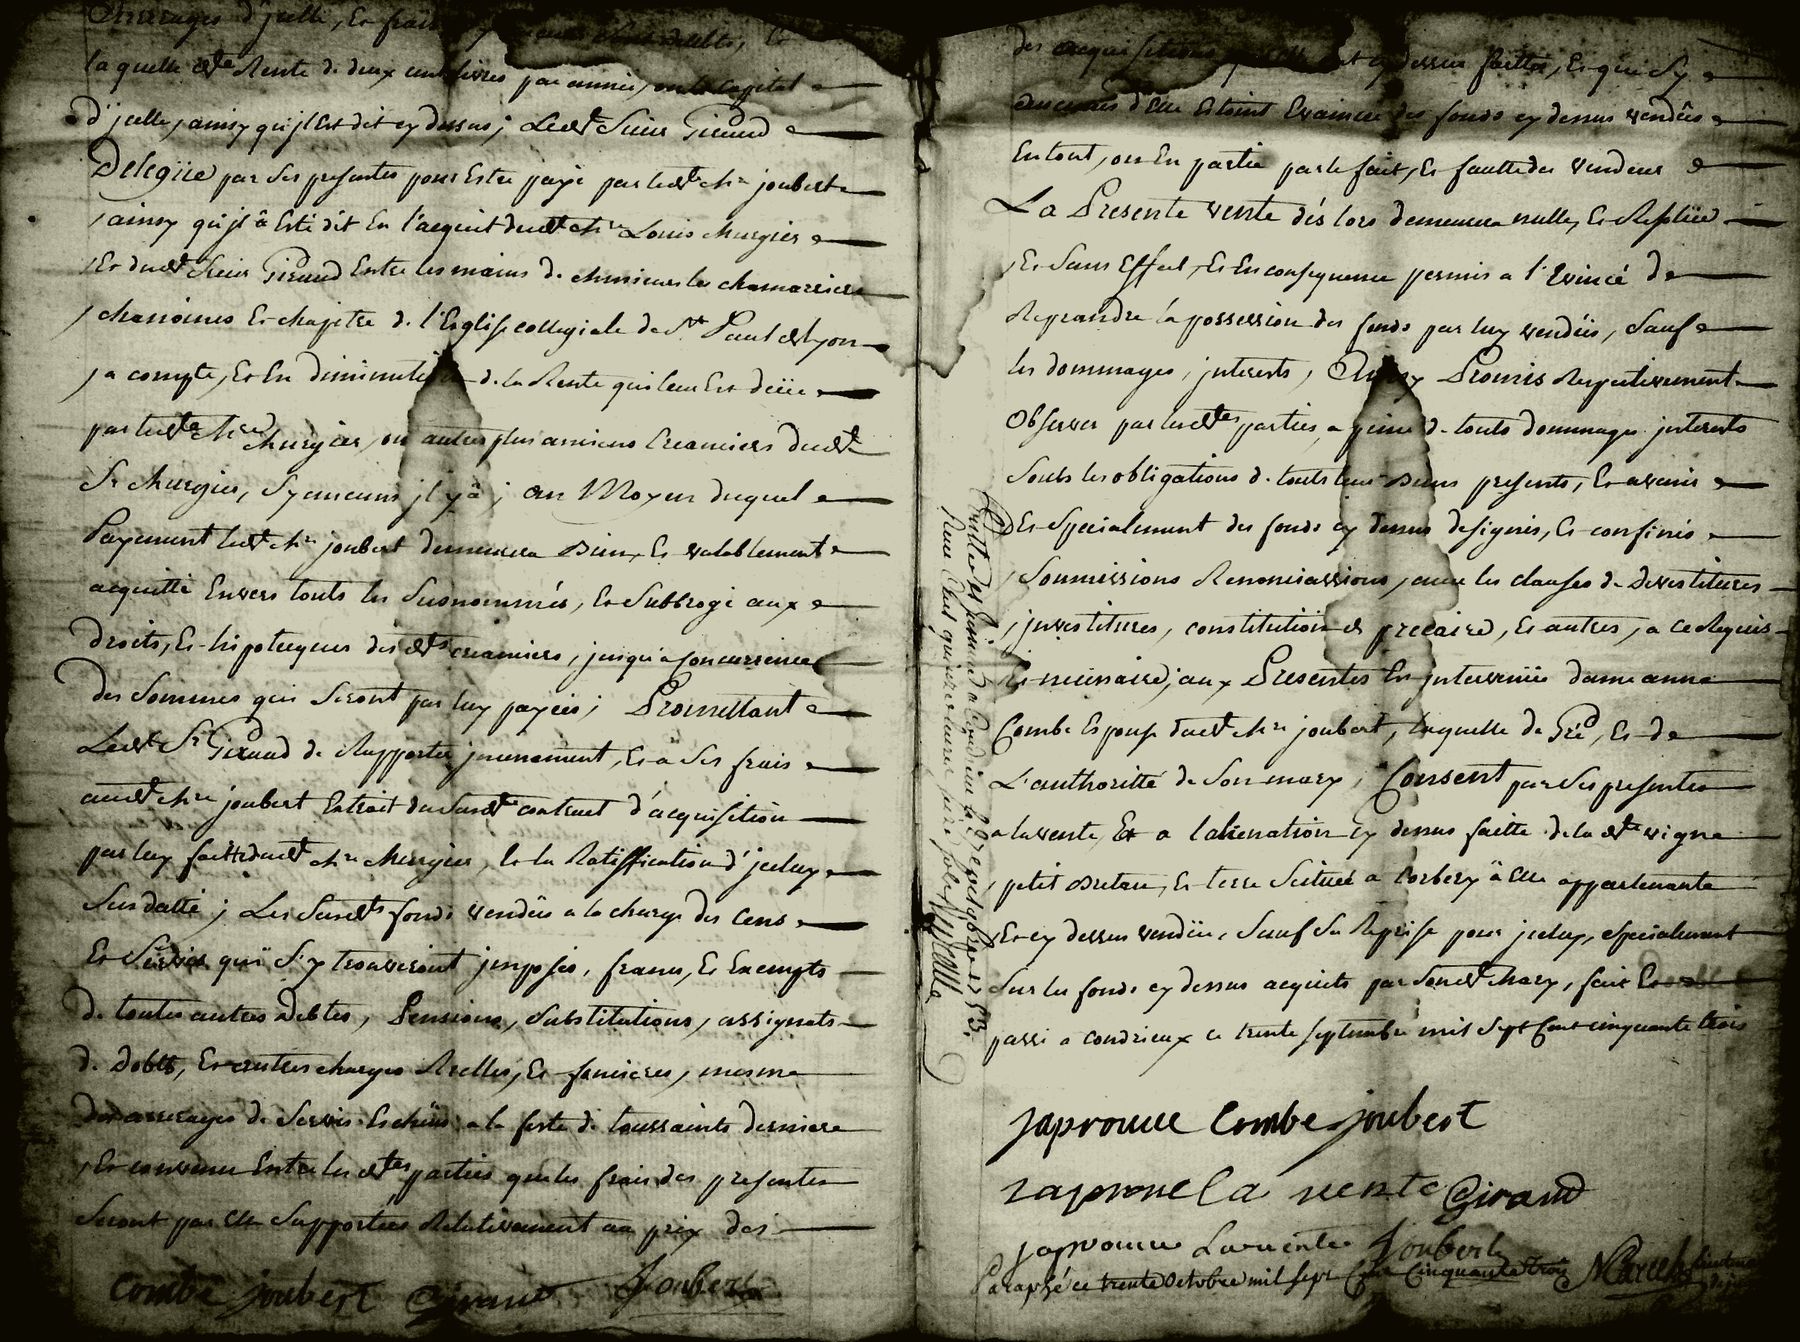 arrerages d'jcelle, Et frais
la quelle dte Rente de deux cent livres par année, ou le capital
d'jcelle, ainsy qu'jl Est dit cy dessus; Ledt Sieur Giraud
Delegüe par Ses presentes pour Estre payé par ledt Mre joubert
ainsy qu'jl â Esté dit En l'acquit dudt Mre Louis Murgier
Et dudt Sieur Giraud Entre les mains de Messieurs les chamarriere
chanoines Et chapitre de l'Eglise collegiale de St Paul de Lyon
a compte, Et En diminution de la Rente qui leur Est deüe
par ledt Mre Murgier, ou autres plus anciens Creanciers dudt
Sr Murgier, Sy aucuns jl y â; au Moyen duquel
Payement ledt Mre joubert demeurera Bien, Et valablement
acquitté Envers touts les Susnommés, Et Subbrogé aux
droits, Et hipoteques desdts creanciers, jusqu'a Concurrence
des Sommes qui Seront par luy payées; Promettant
Ledt Sr Giraud de Rapporter jncessament, Et a Ses frais
audt Mre joubert Extrait du Susdt contract d'acquisition
par luy faitte dudt Mre Murgier, Et la Ratiffication d'jceluy
Susdatté; Les Susdts fonds vendûs a la charge des Cens
Et Servis qui S'y trouveront jmposés, francs, Et Exempts
de toutes autres Debtes, Pensions, Substitutions, assignats
de Dobts, Et autres charges Reelles, Et foncieres, mesme
des arrerages de Servis Escheüs a la feste de toussaints derniere
Et convenu Entre les dtes parties que les frais des presentes
Seront par Elles Supportées Relativement au prix des
combe joubert Giraud Joubert
des acquisitions cy dessus faittes, Et que Sy
aucunes d'Elle Estoint Evaincue des fonds cy dessus vendûs
En tout, ou En partie par le fait, Et fautte des vendeurs
La Presente vente dés lors demeurera nulle, Et Resolüe
Et Sans Effet, Et En consequence permis a l'Evincé de
Reprandre la possession des fonds par luy vendüs, Sauf
les dommages, jnterests, Ainsy Promis Respectivement
Observer par lesdtes parties, a peine de touts dommages jnterests
Soubs les obligations de touts leurs Biens presents, Et avenir
Et Specialement des fonds cy dessus designés, Et confinés
Soumissions Renonciations, avec les clauses de Devestitures
jnvestitures, constitution de precaire, Et autres, a ce Requis
Et necessaire; aux Presentes Est jntervenüe dame anne
Combe Espouse dudt Mre joubert, laquelle de Gré, Et de
L'authoritté de Son mary, Consent par Ses presentes
a la vente, Et a l'alienation cy dessus faitte de la dte vigne
petit Bretan, Et terre Scituée a Corbery â Elle appartenante
Et cy dessus vendüe, Sauf Sa Reprise pour jceluy, Specialement
Sur les fonds cy dessus acquits par Sondt Mary, fait Et
passé a condrieux ce trente septembre mil Sept Cent cinquante trois
japrouve combe joubert
raprouve la vente Giraud
japrouve La vente Joubert
Paraphé ce trente octobre mil sept Cent Cinquante trois